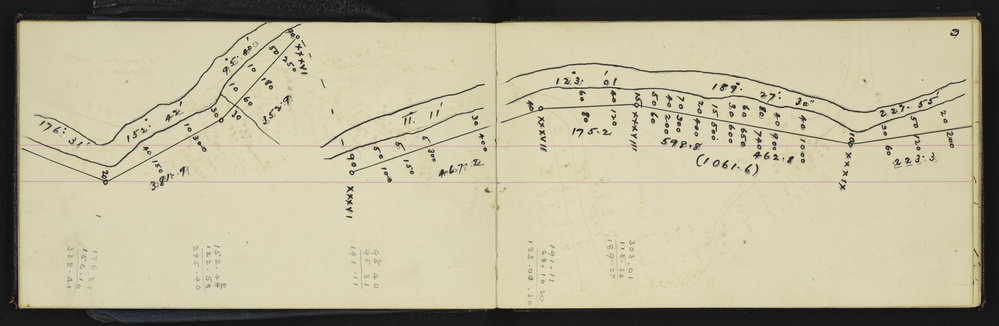 3
176° 31'
200
40
150
10
300
381.9
152° 42'
300
30
95° 40'
10
60
10
180
50
250
90
XXXVI
352.9
11° 11'
900
XXXVI
50
100
5
150
5
300
30
400
467.2
123° 01'
40
XXXVII
60
80
40
120
175.2
150
XXXVIII
50
60
40
200
70
300
20
400
15
500
30
600
60
650
80
740
40
900
40
1000
598.8
462.8
(1061.6)
189° 27' 30"
100
XXXIX
227° 55'
30
60
50
120
20
200
223.3
176 31
156 10
332.41
275.40
95 40
95 31
191.11
191.11
68.10 20
123.00.40
303 01
189.27